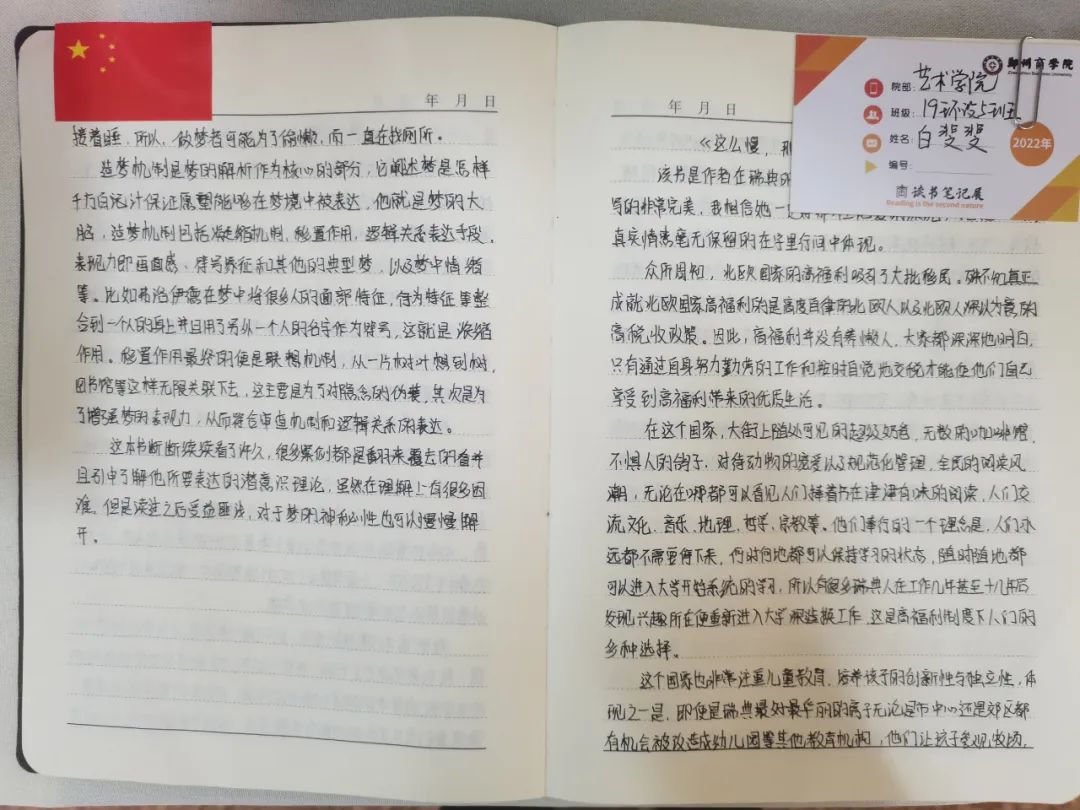 年 月 日
接着睡，所以，做梦者可能为了偷懒，而一直在找厕所。
造梦机制是梦的解析作为核心的部分，它阐述梦是怎样
千方百计保证愿望能够在梦境中被表达，他就是梦的大
脑，造梦机制包括凝缩机制，移置作用，逻辑关系表达手段。
表现力即画面感、符号象征和其他的典型梦，以及梦中情绪
等。比如弗洛伊德在梦中将很多人的面部特征，行为特征等整
合到一个人的身上并且用了另外一个人的名字作为牌号，这就是凝缩
作用。移置作用最终的便是联想机制，从一片树叶想到树，
图书馆等这样无限关联下去，这主要是为了对隐念的伪装，其次是为
了增强梦的表现力，从而符合审查机制和逻辑关系的表达。
这本书断断续续看了许久，很多案例都是翻来覆去的看并
且引申了解他所要表达的潜意识理论，虽然在理解上有很多困
难，但是读过之后受益匪浅，对于梦的神秘性也可以慢慢解
开。
年 月 日
《这么慢，那
该书是作者在瑞典的
写的非常完美，我相信她一定
真实情感毫无保留的在字里行间中体现。
众所周知，北欧国家的高福利吸引了大批移民。殊不知真正
成就北欧国家高福利的是高度自律的北欧人以及北欧人深以为豪的
高税收政策。因此，高福利并没有养懒人，大家都深深地明白，
只有通过自身努力勤劳的工作和按时自觉地交税才能使他们自己
享受到高福利带来的优质生活。
在这个国家，大街上随处可见的超级奶爸，无数的咖啡馆，
不惧人的鸽子，对待动物的宠爱以及规范化管理，全民的阅读风
潮，无论在哪都可以看见人们捧着书在津津有味的阅读，人们交
流文化、音乐、地理、哲学、宗教等。他们奉行的一个理念是，人们永
远都不需要停下来，何时何地都可以保持学习的状态，随时随地都
可以进入大学开始系统的学习，所以有很多瑞典人在工作几年甚至十几年后
发现兴趣所在便重新进入大学深造换工作，这是高福利制度下人们的
多种选择。
这个国家也非常注重儿童教育，培养孩子的创新性与独立性，体
现之一是，即使是瑞典最好最华丽的房子无论是市中心还是郊区都
有机会被改造成幼儿园等其他教育机构，他们让孩子参观牧场，
郑州商学院
Zhengzhou Business University
院部：艺术学院
班级：19环设上班五
姓名：白斐斐
编号：
2022年
商读书笔记展
Reading is the second nature